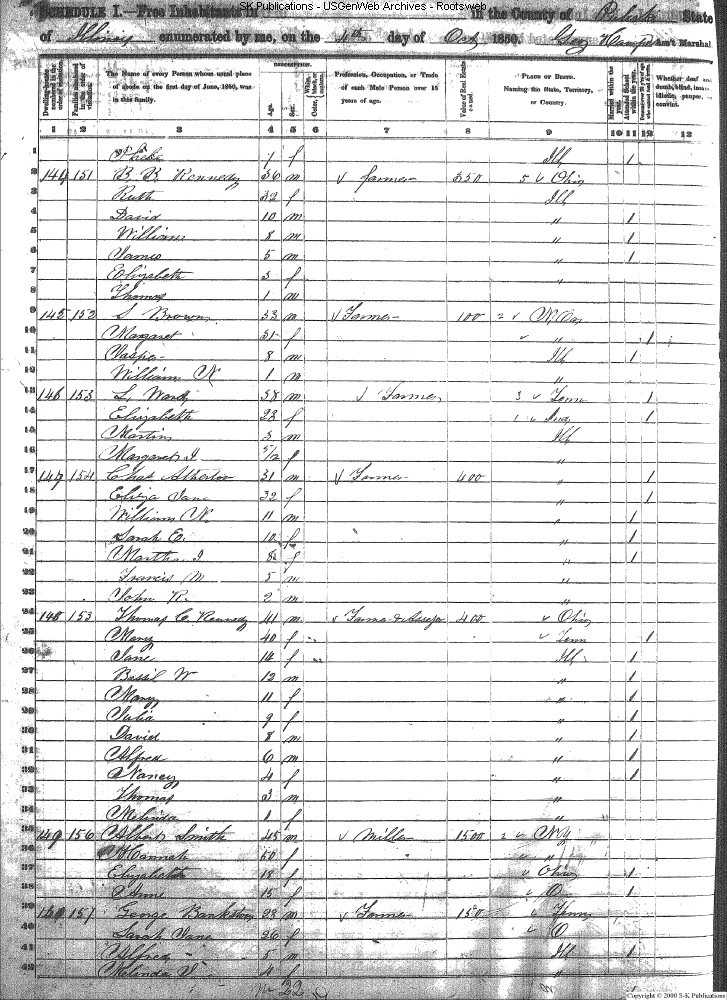 SK Publications - USGenWeb Archives - Rootsweb
SCHEDULE I.—Free Inhabitants in in the County of Pulaski State
of Illinois enumerated by me, on the 4th day of Oct 1850. Ass't Marshal
DESCRIPTION.
Dwelling-houses numbered in the order of visitation. Families numbered in the order of visitation. The Name of every Person whose usual place of abode on the first day of June, 1850, was in this family. Age. Sex. White, Color, black, or mulatto. Profession, Occupation, or Trade of each Male Person over 15 years of age. Value of Real Estate owned. PLACE OF BIRTH. Naming the State, Territory, or Country. Married within the year. Attended School within the year. Whether deaf and dumb, blind, insane, idiotic, pauper, or convict.
1 2 3 4 5 6 7 8 9 10 11 12 13
1 Phebe 7 f Ill /
2 144 151 B. B. Kennedy 36 m farmer 250 5 Ohio
3 Ruth 32 f Ill
4 David 10 m " /
5 William 8 m " /
6 James 5 m " /
7 Elizabeth 3 f "
8 Thomas 1 m
9 145 152 S Brown 33 m Farmer 100 2 N. Car
10 Margaret 31 f " /
11 Jasper 8 m Ill /
12 William N 1 m "
13 146 153 L. Ward 38 m Farmer 3 Tenn /
14 Elizabeth 23 f 1 Ind /
15 Martin 3 m Ill
16 Margaret J 5/12 f "
17 147 154 Chas Atherton 31 m Farmer 400 " /
18 Eliza Jane 32 f " /
19 William N. 11 m " /
20 Sarah E. 10 f " /
21 Martha J 8 f " /
22 Francis M 5 m "
23 John R. 2 m "
24 148 155 Thomas C. Kennedy 41 m Farmer & 400 Ohio
25 Mary 40 f Tenn /
26 Jane 14 f Ill /
27 Bassil W 12 m " /
28 Mary 11 f " /
29 Julia 9 f " /
30 David 8 m " /
31 Alfred 6 m " /
32 Nancy 4 f " /
33 Thomas 3 m "
34 Melinda 1 f "
35 149 156 Albert Smith 45 m Miller 1500 2 N.Y.
36 Hannah 50 f "
37 Elizabeth 18 f Ohio /
38 Anne 15 f O. /
39 150 157 George Bankston 23 m Farmer 150 Tenn
40 Sarah Jane 26 f O
41 Alfred 5 m Ill /
42 Melinda J 4 f "
22
Copyright © 2000 S-K Publications